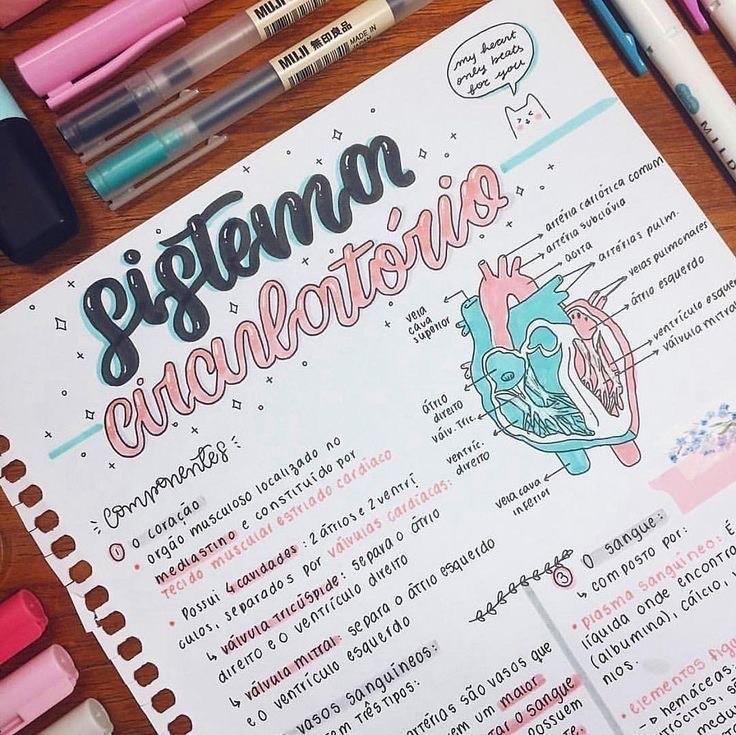 MUJI
MUJI 無印良品
MADE IN JAPAN
my heart
only beats
for you
MILD
sistema
circulatório
artéria carótica comum
artéria subclávia
aorta
artérias pulm.
veias pulmonares
átrio esquerdo
ventrículo esque
válvula mitral
veia
cava
superior
átrio
direito
válv. tric.
ventríc.
direito
veia cava
inferior
componentes
1 O coração
• orgão musculoso localizado no
mediastino e constituído por
tecido muscular estriado cardíaco
• Possui 4 cavidades: 2 átrios e 2 ventrí
culos, separados por válvulas cardíacas:
↳ válvula tricúspide: separa o átrio
direito e o ventrículo direito
↳ válvula mitral: separa o átrio esquerdo
e o ventrículo esquerdo
vasos sanguíneos:
tem três tipos:
artérias são vasos que
em um maior
ar o sangue
possuem
3 O sangue:
↳ composto por:
• plasma sanguíneo: É
líquida onde encontra
(albumina), cálcio,
nios.
• elementos figu
→ hemáceas: